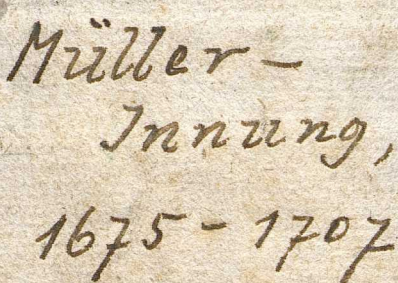 Müller-
Innung,
1675-1707